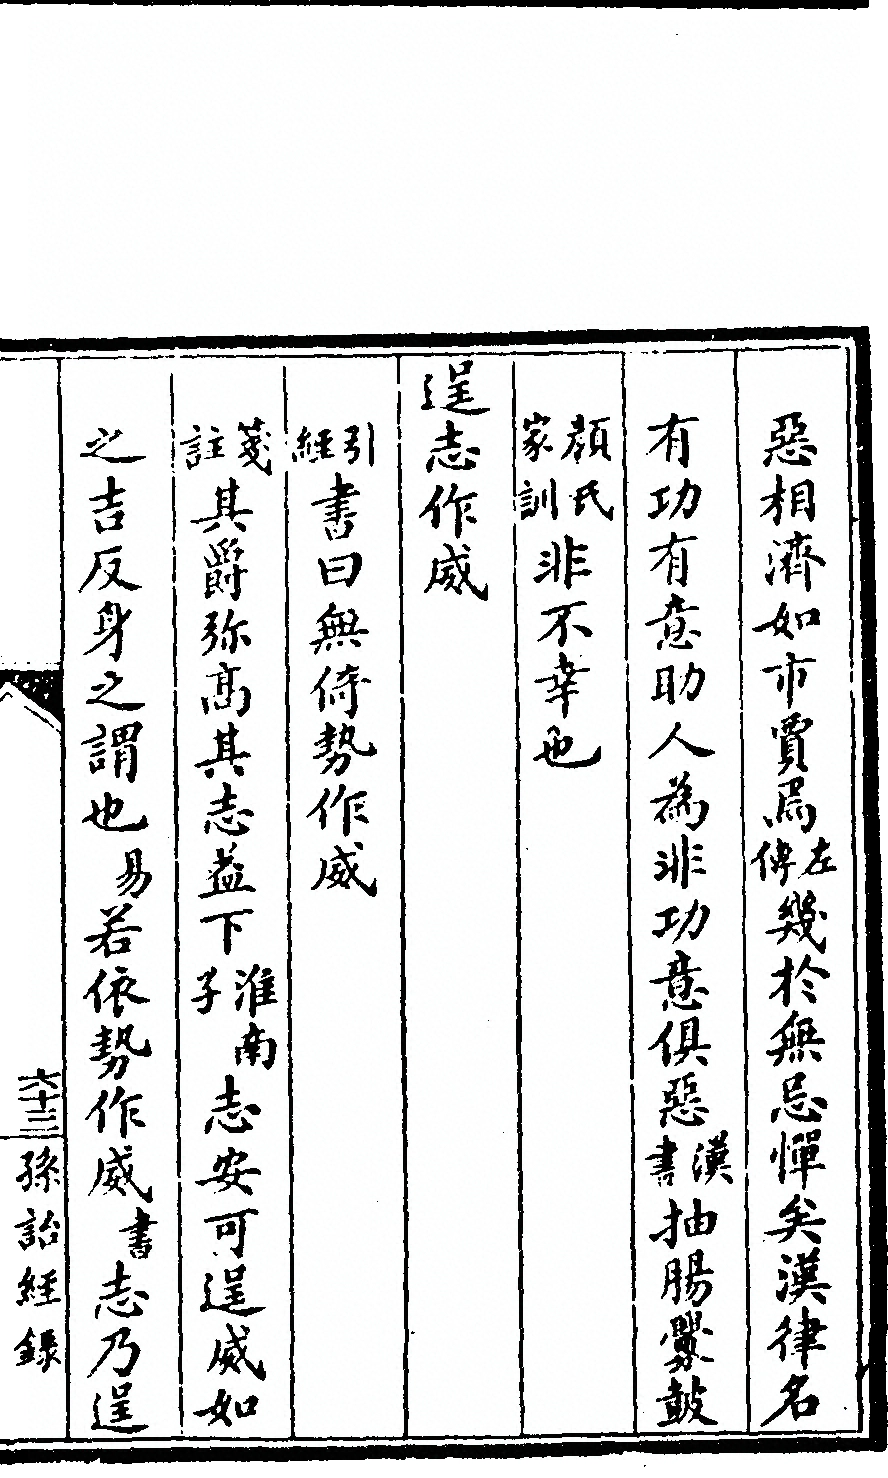 惡相濟如市賈焉左傳幾於無忌憚矣漢律名
有功有意助人為非功意俱惡漢書抽腸釁鼓
顏氏家訓非不幸也
逞志作威
引經書曰無倚勢作威
箋註其爵弥高其志益下淮南子志安可逞威如
之吉反身之謂也易若依勢作威書志乃逞
六十三
孫詒經錄